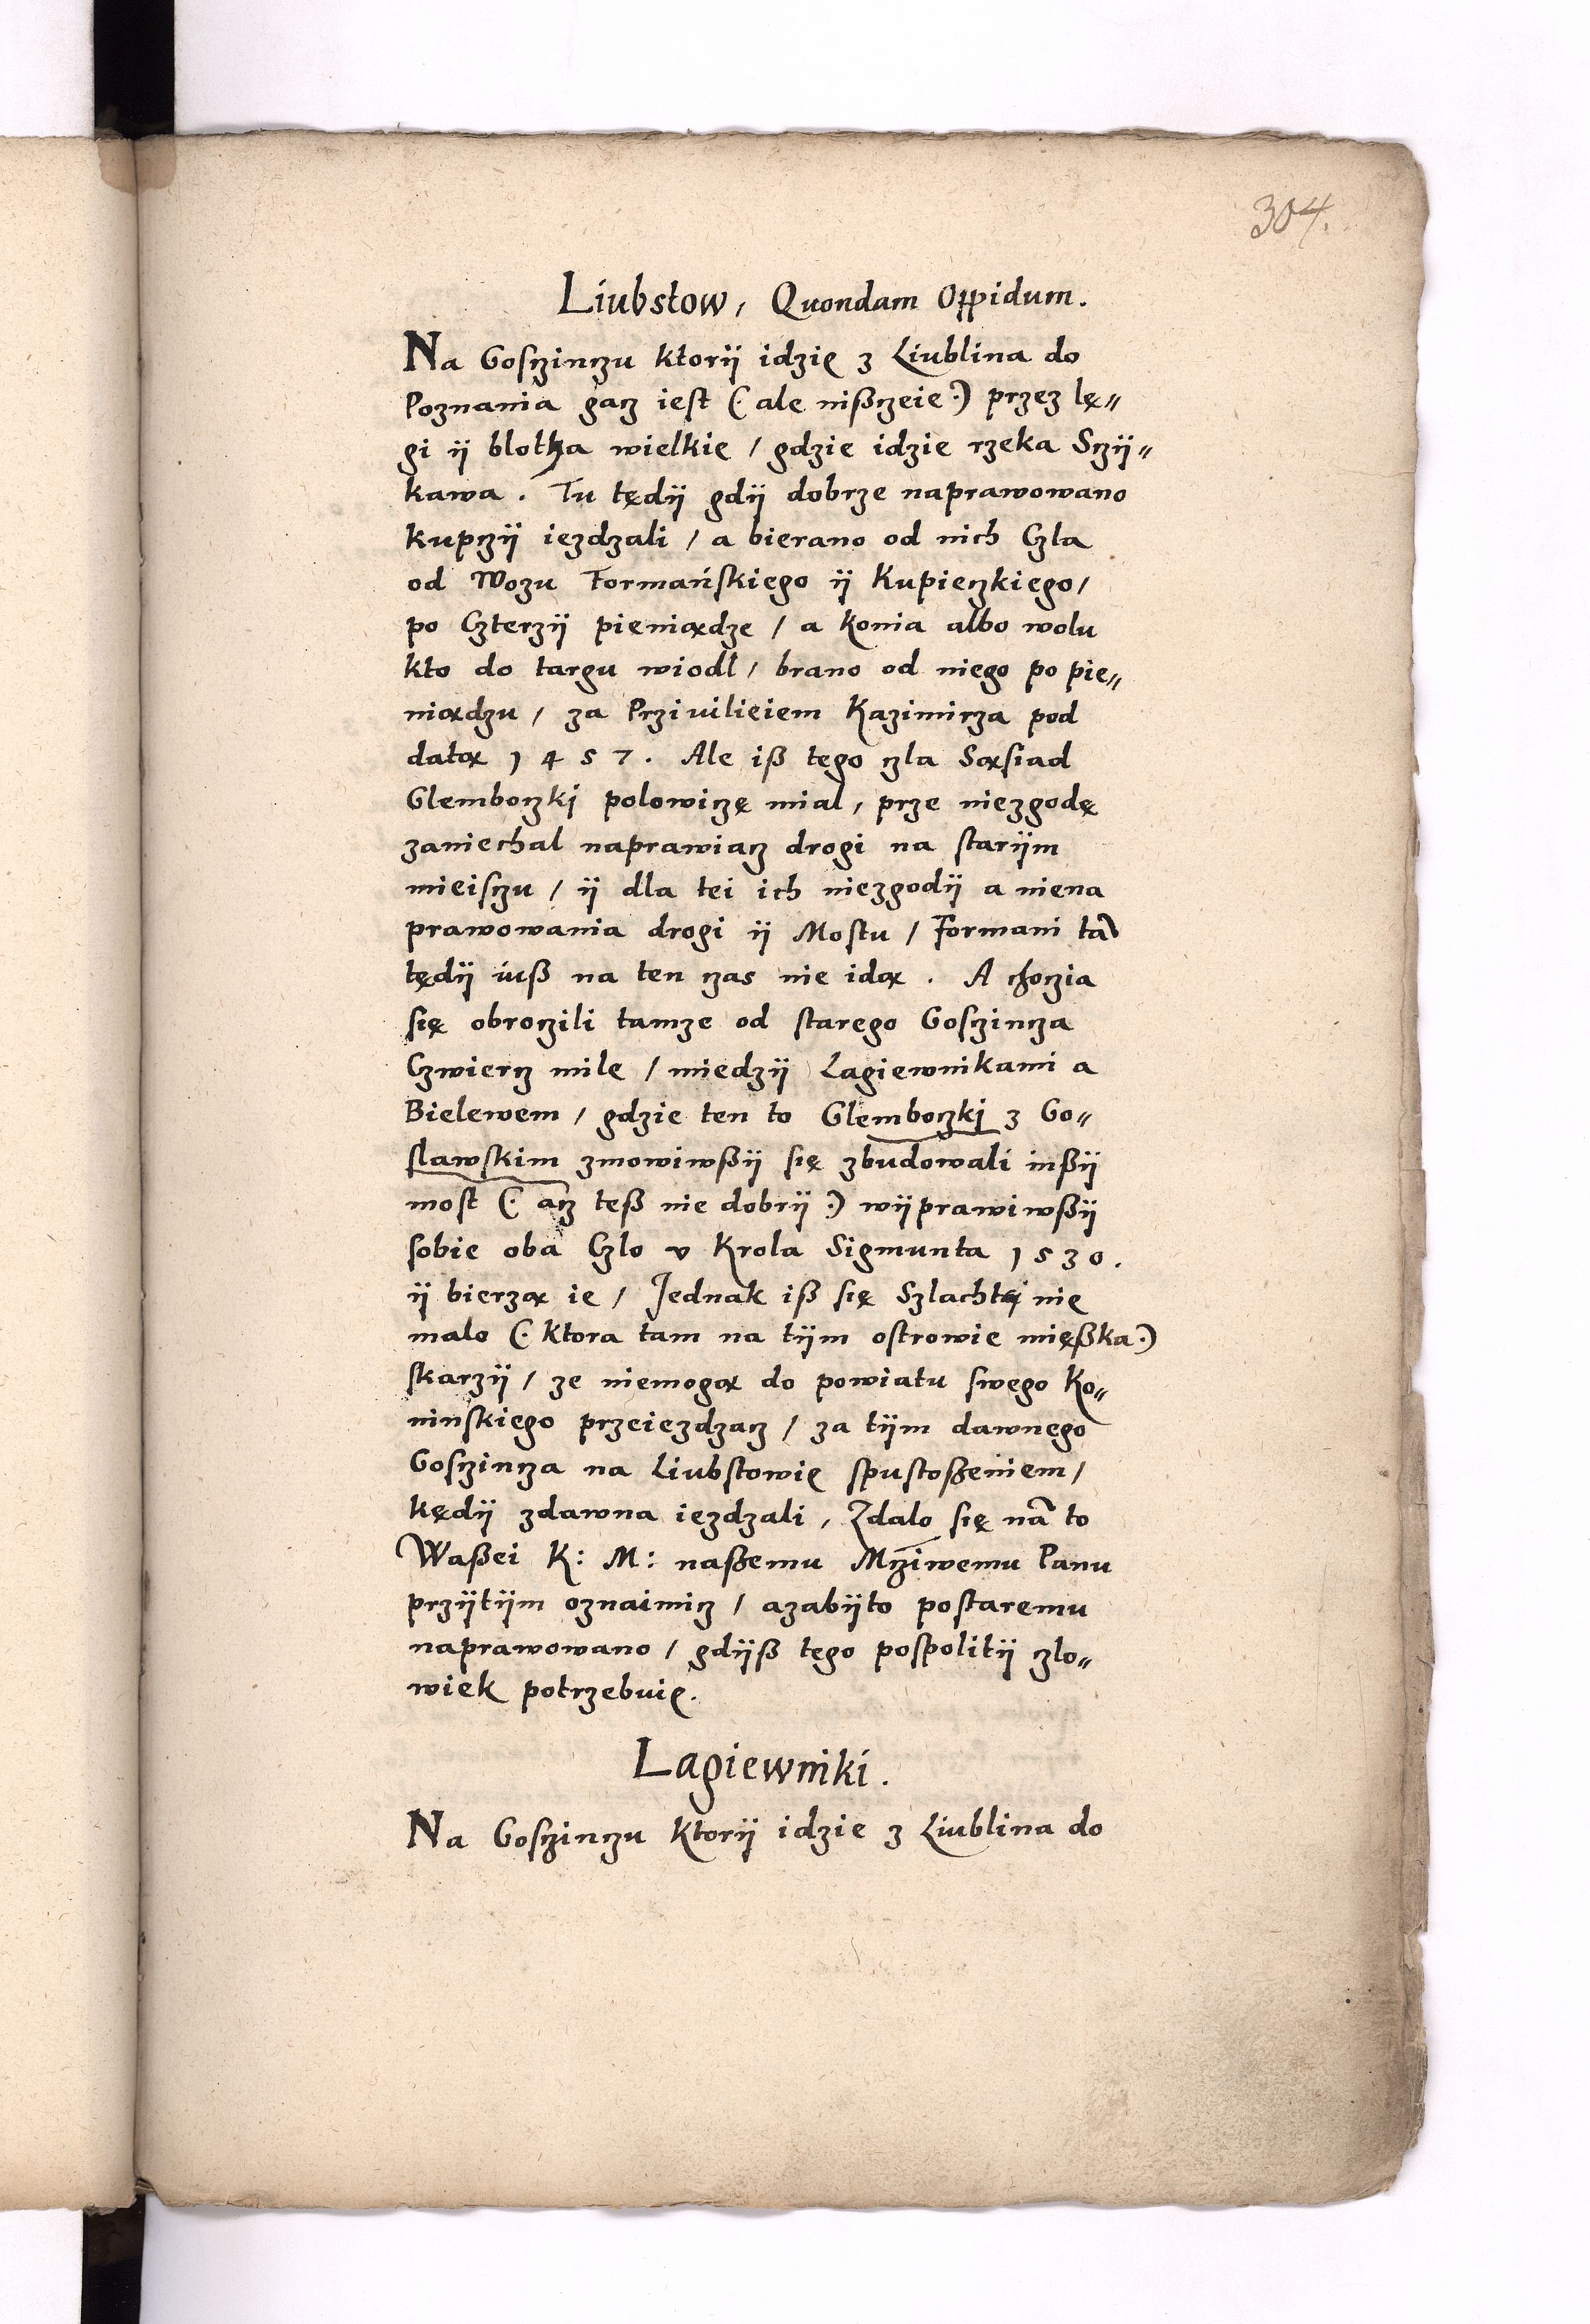 304.
Liubstow, Quondam Oppidum.
Na Gosczinczu ktorÿ idzie z Liublina do
Poznania gacz iest (: ale nißczeie :) przez lę„
gi ÿ blotha wielkie / gdzie idzie rzeka Sczÿ„
kawa. Tu tędÿ gdÿ dobrze naprawowano
kupczÿ iezdzali / a bierano od nich Czla
od Wozu Formańskiego ÿ Kupieczkiego /
po Czterzÿ pieniądze / a Konia albo wolu
kto do targu wiodl / brano od niego po pie„
niądzu / za Prziuilieiem Kazimirza pod
datą 1457. Ale iß tego czla Sąsiad
Glemboczkj polowiczę mial, prze niezgodę
zaniechal naprawiacz drogi na starÿm
mieisczu / ÿ dla tei ich niezgodÿ a niena
prawowania drogi ÿ Mostu / Formani tã
tędÿ iuß na ten czas nie idą. A choczia
się obroczili tamze od starego Gosczincza
Czwiercz mile / miedzÿ Lagiewnikami a
Bielewem / gdzie ten to Glemboczkj z Go„
slawskim zmowiwßÿ się zbudowali inßÿ
most (: acz teß nie dobrÿ :) wÿprawiwßÿ
sobie oba Czlo v Krola Sigmunta 1530.
ÿ bierzą ie / Jednak iß się Szlachtÿ nie
malo (: ktora tam na tÿm ostrowie mięßka :)
skarzÿ / ze niemogą do powiatu swego Ko„
ninskiego przeiezdzacz / za tÿm dawnego
Gosczincza na Liubstowie spustoßeniem /
kędÿ zdawna iezdzali, Zdalo się nã to
Waßei K: M: naßemu Mcziwemu Panu
przÿtÿm oznaimicz / azabÿto postaremu
naprawowano / gdÿß tego pospolitÿ czlo„
wiek potrzebuie.
Lagiewniki.
Na Gosczinczu ktorÿ idzie z Liublina do